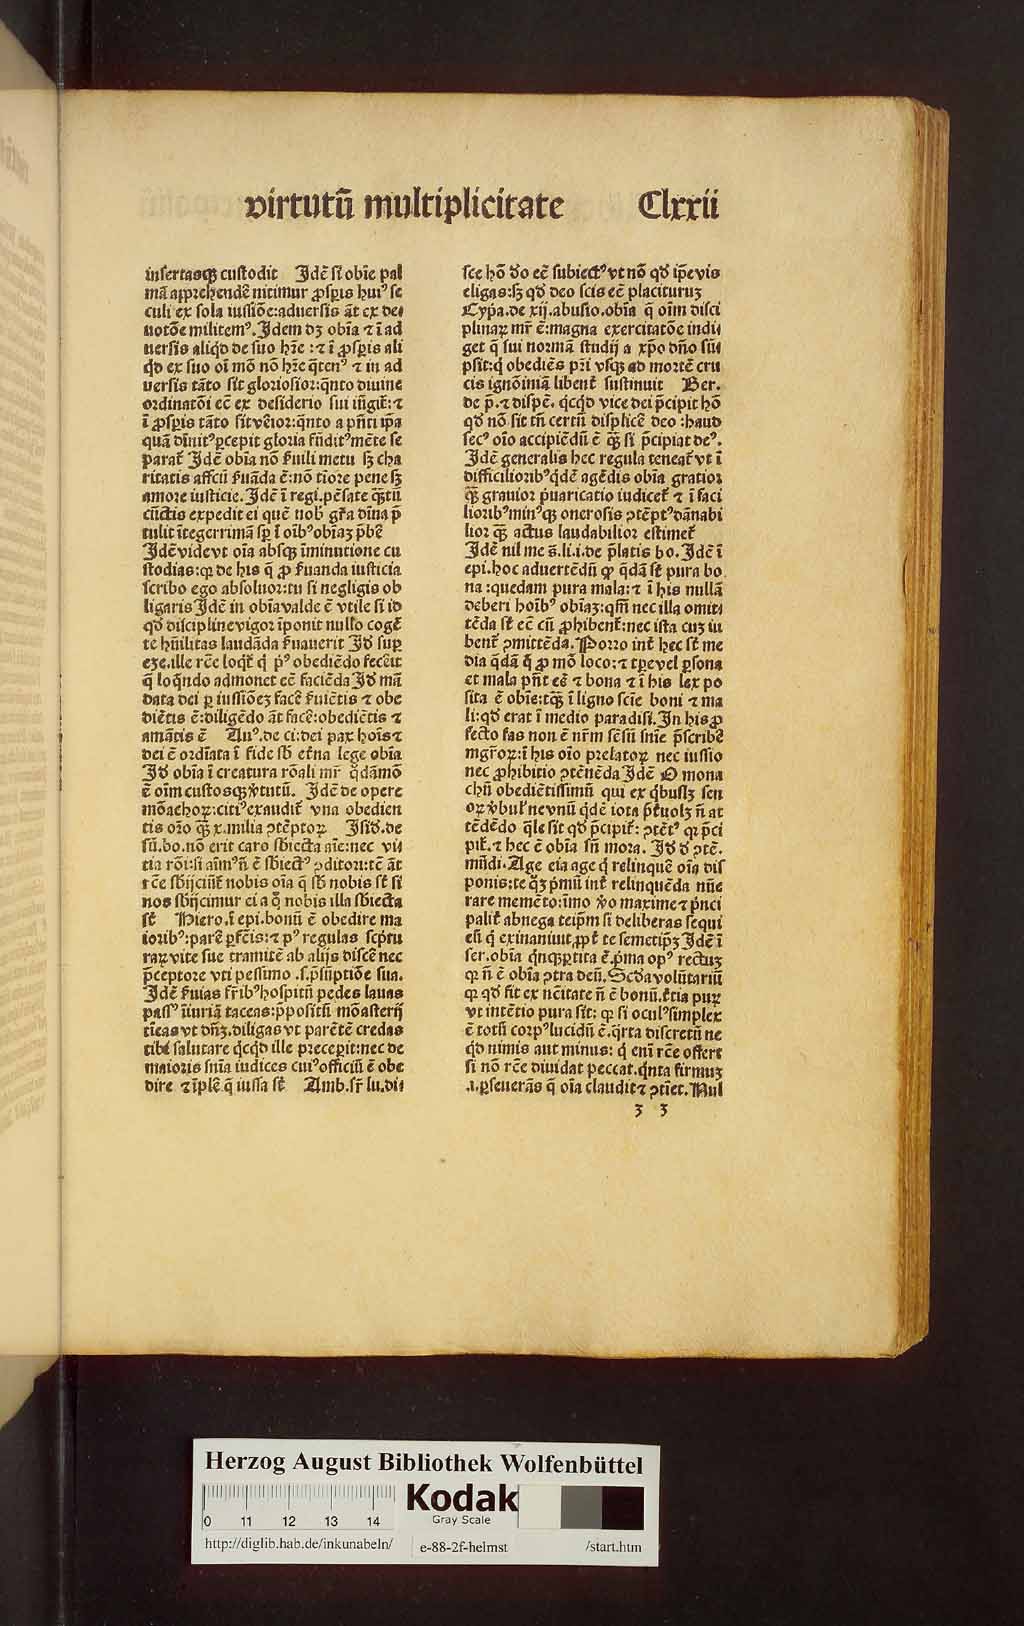 virtutū multiplicitate Clxxii
insertasqꝫ custodit Jdē si obīe pal
mā apprehendē nitimur ꝓsꝑis huiꝰ se
culi ex sola iussiōe: aduersis āt ex de⸗
uotōe militemꝰ. Jdem dꝫ obīa ⁊ ī ad
uersis aliqd de suo hrē: ⁊ ī ꝓsꝑis ali
qd ex suo oī mō nō hrē q̄tenꝰ ⁊ in ad
uersis tāto sit gloriosior: q̄nto diuine
ordinatōi eē ex desiderio sui iūgit᷑: ⁊
ī ꝓsꝑis tāto sit v̄cior: q̄nto a p̄nti ip̄a
quā dīuitꝰ ꝑcepit gloria fūditꝰ mēte se
parat᷑ Jdē obīa nō ẜuili metu sꝫ cha
ritatis affcū ẜuāda ē: nō tīore pene sꝫ
amore iusticie. Jdē ī regi. pēsate q̄ꝫtū
cūctis expedit ei quē uob᷑ gr̄a dīua p̄
tulit ītegerrimā sꝑ ī oībꝰ obīaꝫ p̄bē
Jdē vide vt oīa absqꝫ īminutione cu
stodias: qꝛ de his q̄ ꝓ ẜuanda iusticia
scribo ego absoluor: tu si negligis ob
ligaris Jdē in obīa valde ē vtile si id
qd discipline vigor īponit nullo coge᷑
te hūilitas laudāda ẜuauerit Jd sup
eze. ille rc̄e loqt᷑ q̇ pꝰ obediēdo fecēit
q̄ loqn̄do admonet eē faciēda Jd mā
data dei ꝑ iussiōeꝫ facē ẜuiētis ⁊ obe
diētis ē: diligēdo āt facē: obediētis ⁊
amātis ē Auꝰ. de ci: dei pax hoīs ⁊
dei ē ordīata ī fide sb̄ et᷑na lege obīa
Jd obīa ī creatura rōali mr̄ q̇dāmō
ē oīm custosqꝫ v̇tutū. Jdē de opere
mōachoꝝ: citiꝰ exaudit᷑ vna obedien
tis orō q̄ꝫ x. milia ꝯtēptoꝝ Jsid. de
sū. bo. nō erit caro sb̄iecta aīe: nec vi⸗
tia rōi: si aīmꝰ n̄ ē sb̄iectꝰ ꝯditori: tē āt
rc̄e sb̄ijciūt᷑ nobis oīa q̄ sb̄ nobis st̄ si
nos sb̄ijcimur ei a q̇ nobis illa sb̄iecta
st̄ Hiero. ī epi. bonū ē obedire ma
ioribꝰ: parē ꝑfcīs: ⁊ pꝰ regulas scptu
raꝝ vite sue tramitē ab alijs discē nec
p̄ceptore vti pessimo .s. p̄sūptiōe sua.
Jdē ẜuias fr̄ibꝰ hospitū pedes lauas
passꝰ īiuriā taceas: p̄positū mōasterij
tīeas vt dn̄ꝫ. diligas vt parētē credas
tibi salutare qcqd ille preceꝑit: nec de
maioris sn̄ia iudices cuiꝰ officiū ē obe
dire ⁊ īplē q̄ iussa st̄ Amb. sꝛ lu. di⸗
sce hō do eē subiectꝰ vt nō qd ip̄e vis
eligas: sꝫ qd deo scis eē placituruꝫ
Cyp̄a. de xij. abusio. obīa q̄ oīm disci
plinaꝝ mr̄ ē: magna exercitatōe indi⸗
get q̄ sui normā studij a xp̄o dn̄o sūi
psit: q̇ obediēs pr̄i vsqꝫ ad mortē cru
cis ignōiniā libent᷑ sustinuit Ber.
de p̄. ⁊ dispē. qcqd vice dei p̄cipit hō
qd nō sit tn̄ certū displicē deo: haud
secꝰ oīo accipiēdū ē q̄ꝫ si p̄cipiat deꝰ.
Jdē generalis hec regula teneat᷑ vt ī
difficilioribꝰ qdē agēdis obīa gratior
q̄ꝫ grauior p̄uaricatio iudicet᷑ ⁊ ī faci
lioribꝰ minꝰqꝫ onerosis ꝯtēptꝰ dānabi
lior q̄ꝫ actus laudabilior estimet᷑
Jdē nil me s̄. li. i. de p̄latis bo. Jdē ī
epi. hoc aduertēdū qꝙ q̄dā st̄ pura bo
na: quedam pura mala: ⁊ ī his nullā
deberi hoībꝰ obīaꝫ: qm̄ nec illa omit⸗
tēda st̄ eē cū ꝓhibent᷑: nec ista cuꝫ iu
bent᷑ ꝯmittēda. Porro int᷑ hec st̄ me
dia q̄dā q̄ ꝓ mō loco: ⁊ tꝑe vel ꝑsona
et mala pn̄t eē ⁊ bona ⁊ ī his lex po
sita ē obīe: tq̄ꝫ ī ligno scīe boni ⁊ ma
li: qd erat ī medio paradisi. Jn his ꝓ
fecto fas non ē nr̄m sēsū sn̄ie p̄scribē
mgr̄oꝝ: ī his oīo prelatoꝝ nec iussio
nec ꝓhibitio ꝯtēnēda Jdē O mona
chū obediētissimū qui ex qbusꝫ sen
oꝝ v̇bul᷑ ne vnū qdē iota p̄t᷑uolꝫ n̄ at
tēdēdo q̄le sit qd p̄cipit᷑: ꝯtētꝰ qꝛ p̄ci
pit᷑. ⁊ hec ē obīa sn̄ mora. Jd d ꝯtē.
mūdi. Age eia age q̇ relinquē oīa dis
ponis: te q̄ꝫ p̄mū int᷑ relinquēda nūe
rare memēto: īmo v̇o maxime ⁊ p̄nci
palit᷑ abnega teipm̄ si deliberas sequi
eū q̇ exinaniuit ꝓpt᷑ te semetip̄ꝫ Jdē ī
ser. obīa qnqꝫꝑtita ē. p̄ma opꝰ rectuꝫ
qꝛ n̄ ē obīa ꝯtra deū. Scd̄a volūtariū
qꝛ qd fit ex nc̄itate n̄ ē bonū. t᷑tia pur
vt intētio pura sit: qꝛ si oculꝰ simplex
ē totū corpꝰ lucidū ē. q̄rta discretū ne
qd nimis aut minus: q̇ enī rc̄e offert
si nō rc̄e diuidat peccat. q̄nta firmuꝫ
.i. ꝑseuerās q̄ oīa claudit ⁊ ꝯtīet. Nul
ꝫ ꝫ
Herzog August Bibliothek Wolfenbüttel
0 11 12 13 14
Kodak
Gray Scale
http://diglib.hab.de/inkunabeln/ e-88-2f-helmst /start.htm